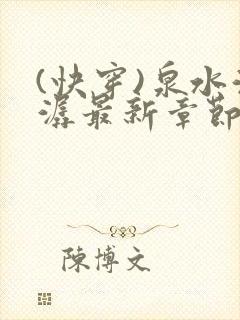 (快穿)泉水
潺最新章節
陳博文